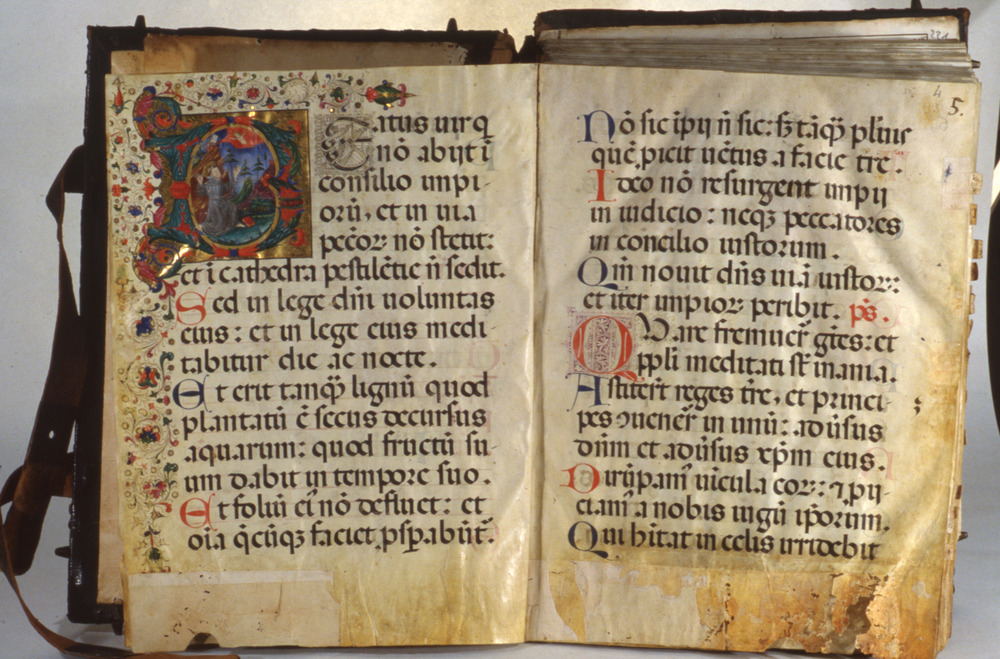 Beatus uir q
nō abijt ī
consilio impi-
orū, et in uia
pcc̄oꝝ nō stetit:
et ī cathedra pestilētie n̄ sedit.
Sed in lege dn̄i uoluntas
eius: et in lege eius medi-
tabitur die ac nocte.
Et erit tamq̄ʒ lignū quod
plantatū ē secus decursus
aquarum: quod fructū su-
um dabit in tempore suo.
Et foliū eiꝰ nō defluet: et
oīa q̄cūqꝫ faciet ꝓspabūt̄.
221
4
5.
Nō sic ipij n̄ sic: sꝫ tāqʒ pluis
quē ꝓicit uētus a facie tr̄e.
Ideo nō resurgent impij
in iudicio: neqꝫ peccatores
in concilio iustorum.
Qm̄ nouit dn̄s uiā iustoꝝ:
et iter impioꝝ peribit. ps̄.
Quare fremuer̄ gt̄es: et
ppl̄i meditati st̄ inania.
Astiter̄t reges tr̄e, et princi-
pes ꝯuener̄ in unū: aduʼsus
dn̄m et aduʼsus xp̄m eius.
Dirūpamꝰ uīcula eoꝝ: ⁊ ꝓij-
ciamꝰ a nobis iugū ip̄orum.
Qui hītat in celis irridebit